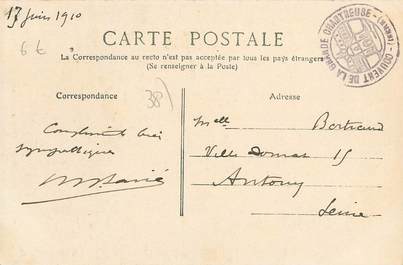 17 juin 1910
6 €
CARTE POSTALE
COUVENT DE LA GRANDE CHARTREUSE - (ISÈRE) -
La Correspondance au recto n'est pas acceptée par tous les pays étrangers
(Se renseigner à la Poste)
Correspondance
38)
Adresse
Compliments très
sympathiques
Melle Bertrand
Villa 15
Antony
Seine